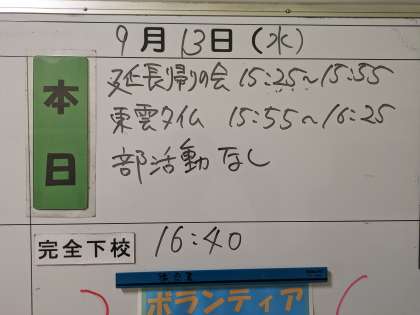 9月13日(水)
本日
延長帰りの会 15:25~15:55
東雲タイム 15:55~16:25
部活動なし
完全下校 16:40
ボランティア